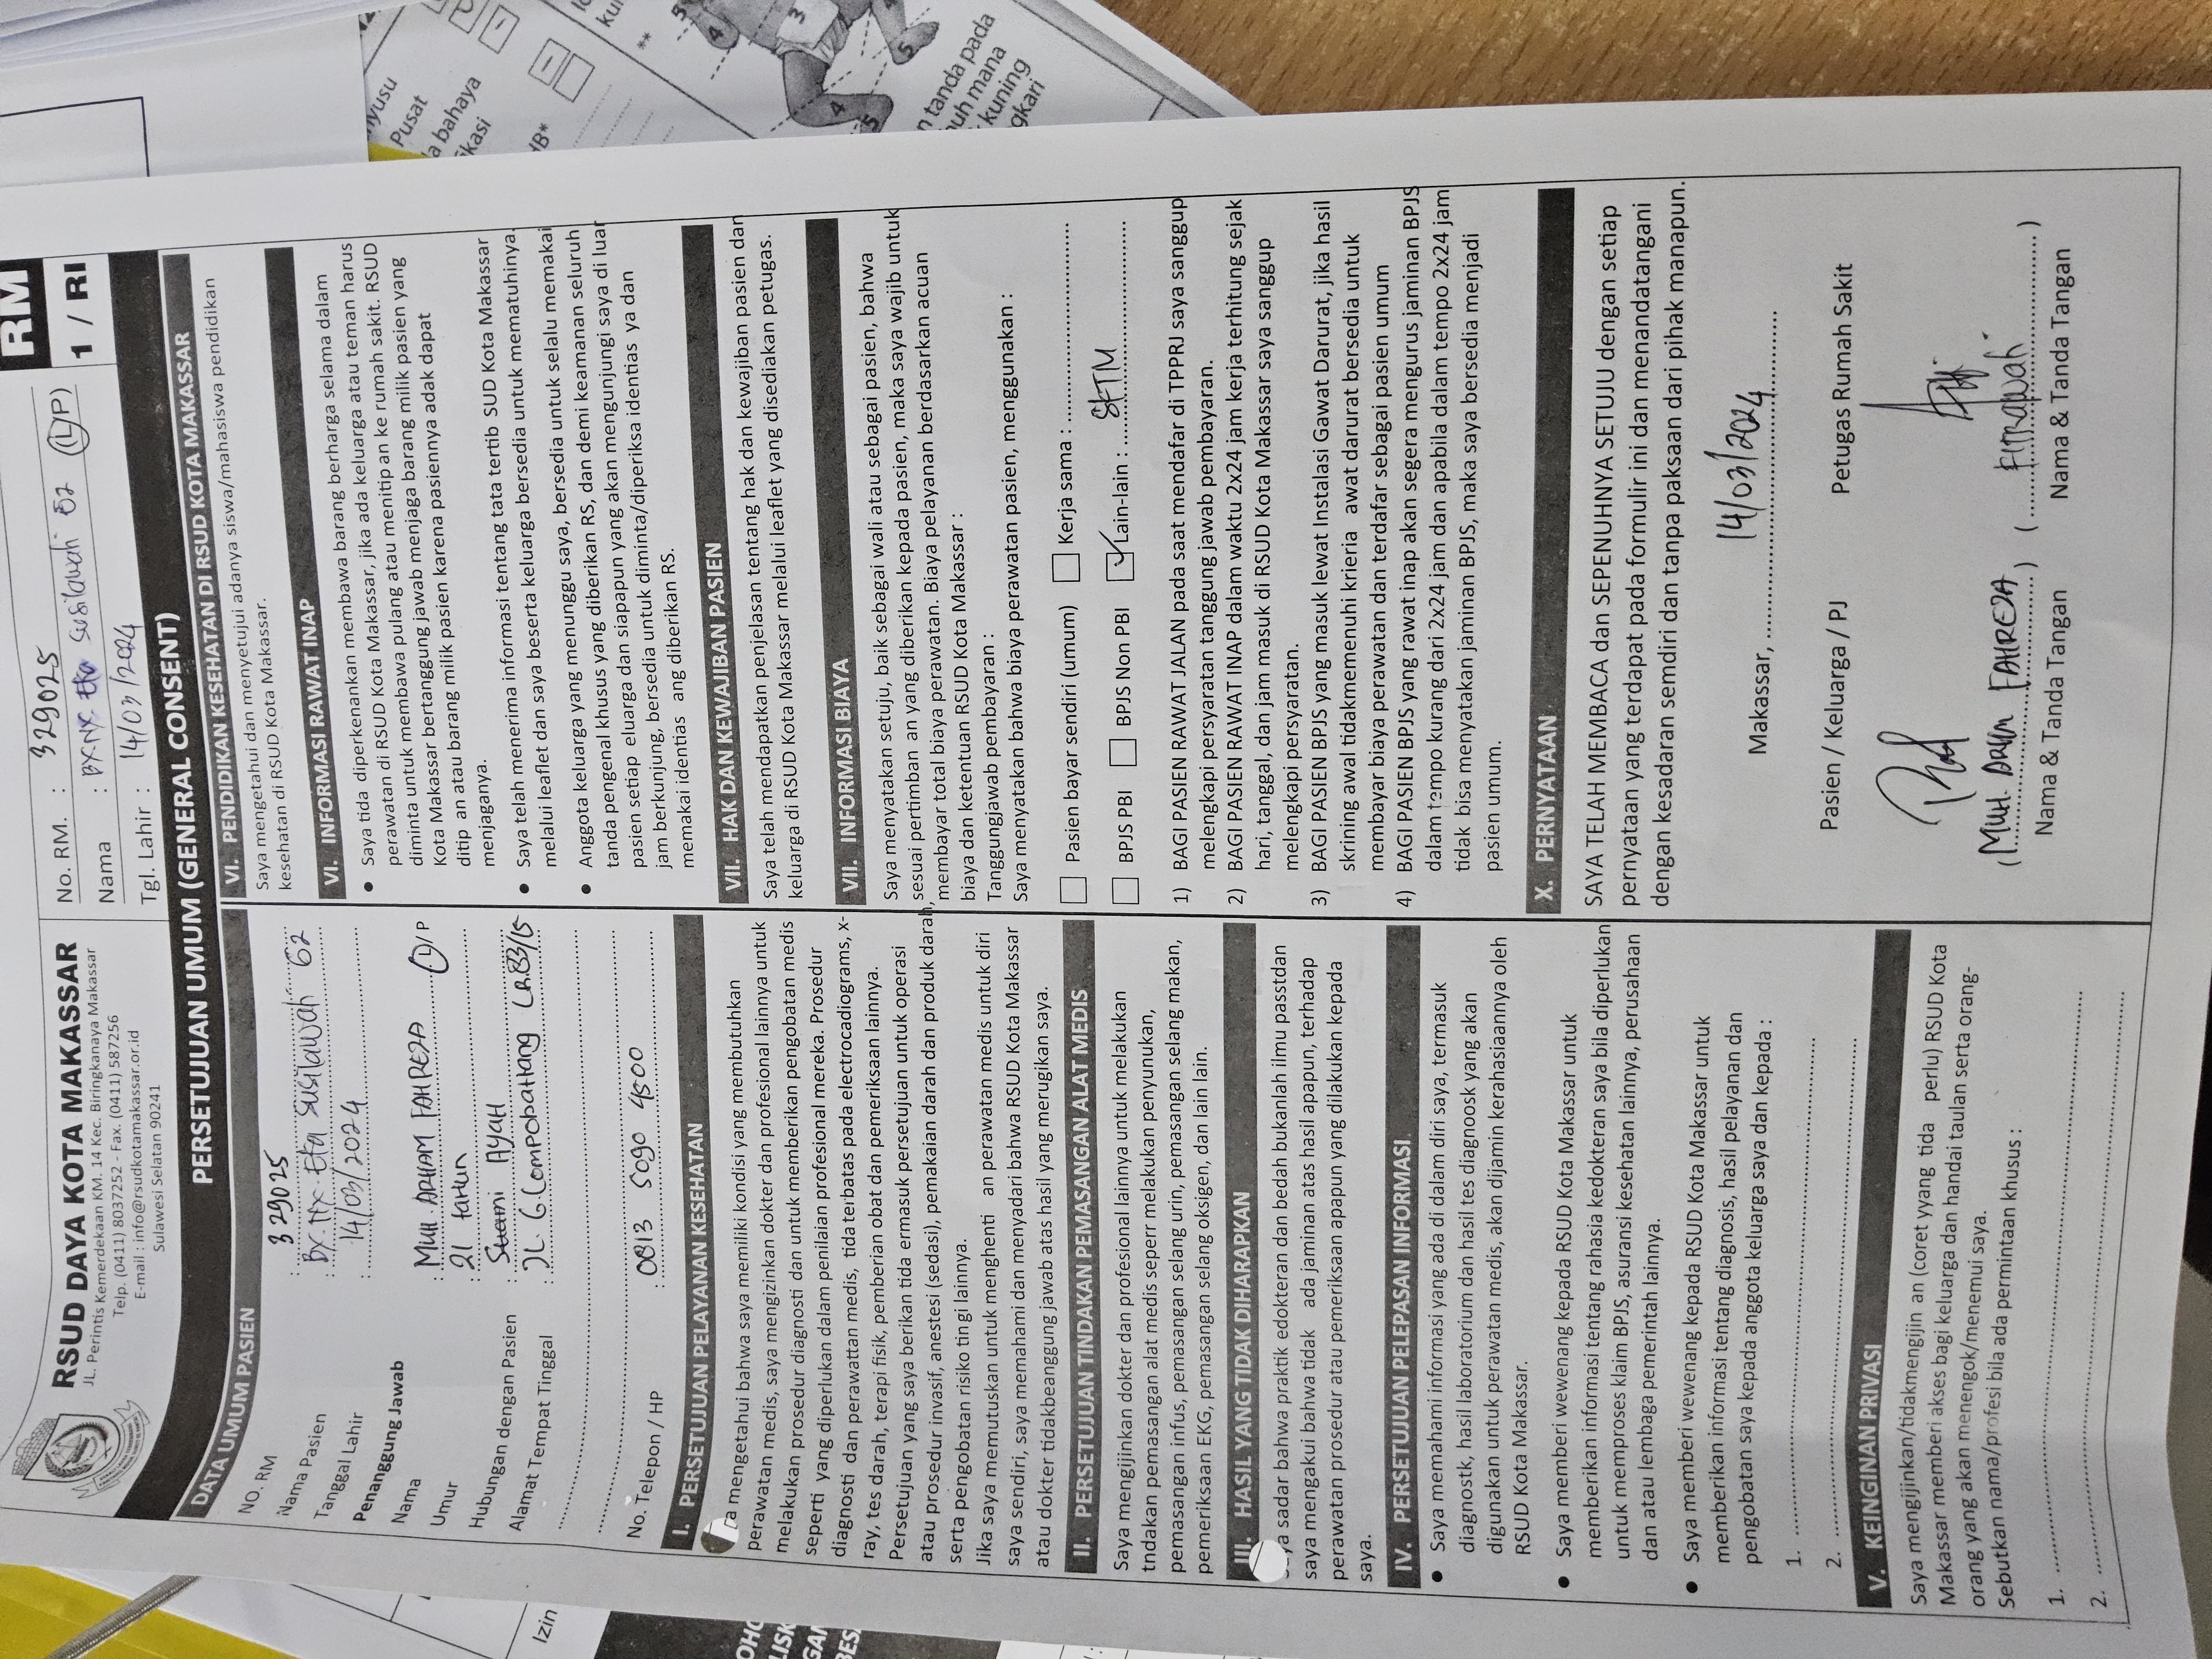 RSUD DAYA KOTA MAKASSAR
JL. Perintis Kemerdekaan KM. 14 Kec. Biringkanaya Makassar
Telp. (0411) 8037252 - Fax. (0411) 587256
E-mail : info@rsudkotamakassar.or.id
Sulawesi Selatan 90241
No. RM. : 329025
Nama : BY.NY. Eka Susilawati G2 (L/P)
Tgl. Lahir : 14/03/2024
RM
1 / RI
PERSETUJUAN UMUM (GENERAL CONSENT)
DATA UMUM PASIEN
NO. RM : 329025
Nama Pasien : BY.NY. Eka Susilawati G2
Tanggal Lahir : 14/03/2024
Penanggung Jawab
Nama : MUH. ARHAM FAHREZA L/P
Umur : 21 tahun
Hubungan dengan Pasien : Suami AYAH
Alamat Tempat Tinggal : JL. G. Lompobattang LR.83/15
No. Telepon / HP : 0813 5090 4800
I. PERSETUJUAN PELAYANAN KESEHATAN
a mengetahui bahwa saya memiliki kondisi yang membutuhkan
perawatan medis, saya mengizinkan dokter dan profesional lainnya untuk
melakukan prosedur diagnosti dan untuk memberikan pengobatan medis
seperti yang diperlukan dalam penilaian profesional mereka. Prosedur
diagnosti dan perawattan medis, tida terbatas pada electrocadiograms, x-
ray, tes darah, terapi fisik, pemberian obat dan pemeriksaan lainnya.
Persetujuan yang saya berikan tida ermasuk persetujuan untuk operasi
atau prosedur invasif, anestesi (sedasi), pemakaian darah dan produk darah,
serta pengobatan risiko tin gi lainnya.
Jika saya memutuskan untuk menghenti an perawatan medis untuk diri
saya sendiri, saya memahami dan menyadari bahwa RSUD Kota Makassar
atau dokter tidakbeanggung jawab atas hasil yang merugikan saya.
II. PERSETUJUAN TINDAKAN PEMASANGAN ALAT MEDIS
Saya mengijinkan dokter dan profesional lainnya untuk melakukan
tndakan pemasangan alat medis seperr melakukan penyunukan,
pemasangan infus, pemasangan selang urin, pemasangan selang makan,
pemeriksaan EKG, pemasangan selang oksigen, dan lain lain.
III. HASIL YANG TIDAK DIHARAPKAN
ya sadar bahwa praktik edokteran dan bedah bukanlah ilmu passtdan
saya mengakui bahwa tidak ada jaminan atas hasil apapun, terhadap
perawatan prosedur atau pemeriksaan apapun yang dilakukan kepada
saya.
IV. PERSETUJUAN PELEPASAN INFORMASI
• Saya memahami informasi yang ada di dalam diri saya, termasuk
diagnostk, hasil laboratorium dan hasil tes diagnoosk yang akan
digunakan untuk perawatan medis, akan dijamin kerahasiaannya oleh
RSUD Kota Makassar.
• Saya memberi wewenang kepada RSUD Kota Makassar untuk
memberikan informasi tentang rahasia kedokteran saya bila diperlukan
untuk memproses klaim BPJS, asuransi kesehatan lainnya, perusahaan
dan atau lembaga pemerintah lainnya.
• Saya memberi wewenang kepada RSUD Kota Makassar untuk
memberikan informasi tentang diagnosis, hasil pelayanan dan
pengobatan saya kepada anggota keluarga saya dan kepada :
1.
2.
V. KEINGINAN PRIVASI
Saya mengijinkan/tidakmengijin an (coret yyang tida perlu) RSUD Kota
Makassar memberi akses bagi keluarga dan handai taulan serta orang-
orang yang akan menengok/menemui saya.
Sebutkan nama/profesi bila ada permintaan khusus :
1.
2.
VI. PENDIDIKAN KESEHATAN DI RSUD KOTA MAKASSAR
Saya mengetahui dan menyetujui adanya siswa/mahasiswa pendidikan
kesehatan di RSUD Kota Makassar.
VI. INFORMASI RAWAT INAP
• Saya tida diperkenankan membawa barang berharga selama dalam
perawatan di RSUD Kota Makassar, jika ada keluarga atau teman harus
diminta untuk membawa pulang atau menitip an ke rumah sakit. RSUD
Kota Makassar bertanggung jawab menjaga barang milik pasien yang
ditip an atau barang milik pasien karena pasiennya adak dapat
menjaganya.
• Saya telah menerima informasi tentang tata tertib SUD Kota Makassar
melalui leaflet dan saya beserta keluarga bersedia untuk mematuhinya.
• Anggota keluarga yang menunggu saya, bersedia untuk selalu memakai
tanda pengenal khusus yang diberikan RS, dan demi keamanan seluruh
pasien setiap eluarga dan siapapun yang akan mengunjungi saya di luar
jam berkunjung, bersedia untuk diminta/diperiksa identias ya dan
memakai identias ang diberikan RS.
VII. HAK DAN KEWAJIBAN PASIEN
Saya telah mendapatkan penjelasan tentang hak dan kewajiban pasien dan
keluarga di RSUD Kota Makassar melalui leaflet yang disediakan petugas.
VII. INFORMASI BIAYA
Saya menyatakan setuju, baik sebagai wali atau sebagai pasien, bahwa
sesuai pertimban an yang diberikan kepada pasien, maka saya wajib untuk
membayar total biaya perawatan. Biaya pelayanan berdasarkan acuan
biaya dan ketentuan RSUD Kota Makassar :
Tanggungjawab pembayaran :
Saya menyatakan bahwa biaya perawatan pasien, menggunakan :
Pasien bayar sendiri (umum) Kerja sama :
BPJS PBI BPJS Non PBI Lain-lain : SKTM
1) BAGI PASIEN RAWAT JALAN pada saat mendafar di TPPRJ saya sanggup
melengkapi persyaratan tanggung jawab pembayaran.
2) BAGI PASIEN RAWAT INAP dalam waktu 2x24 jam kerja terhitung sejak
hari, tanggal, dan jam masuk di RSUD Kota Makassar saya sanggup
melengkapi persyaratan.
3) BAGI PASIEN BPJS yang masuk lewat Instalasi Gawat Darurat, jika hasil
skrining awal tidakmemenuhi krieria awat darurat bersedia untuk
membayar biaya perawatan dan terdafar sebagai pasien umum
4) BAGI PASIEN BPJS yang rawat inap akan segera mengurus jaminan BPJS
dalam tempo kurang dari 2x24 jam dan apabila dalam tempo 2x24 jam
tidak bisa menyatakan jaminan BPJS, maka saya bersedia menjadi
pasien umum.
X. PERNYATAAN
SAYA TELAH MEMBACA dan SEPENUHNYA SETUJU dengan setiap
pernyataan yang terdapat pada formulir ini dan menandatangani
dengan kesadaran semdiri dan tanpa paksaan dari pihak manapun.
Makassar, 14/03/2024
Pasien / Keluarga / PJ Petugas Rumah Sakit
(MUH. ARHAM FAHREZA) (Fitrawati)
Nama & Tanda Tangan Nama & Tanda Tangan
Izin
Pusat
a bahaya
kasi
n tanda pada
uh mana
kuning
gkari